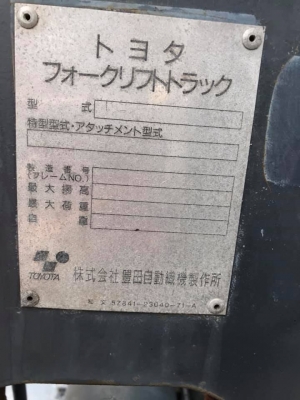 トヨタ
フォークリフトトラック
型式
特型型式・アタッチメント型式
製造番号
(フレームNO.)
最大揚高
最大荷重
自重
TOYOTA
株式会社豊田自動織機製作所
57841-23040-71-A